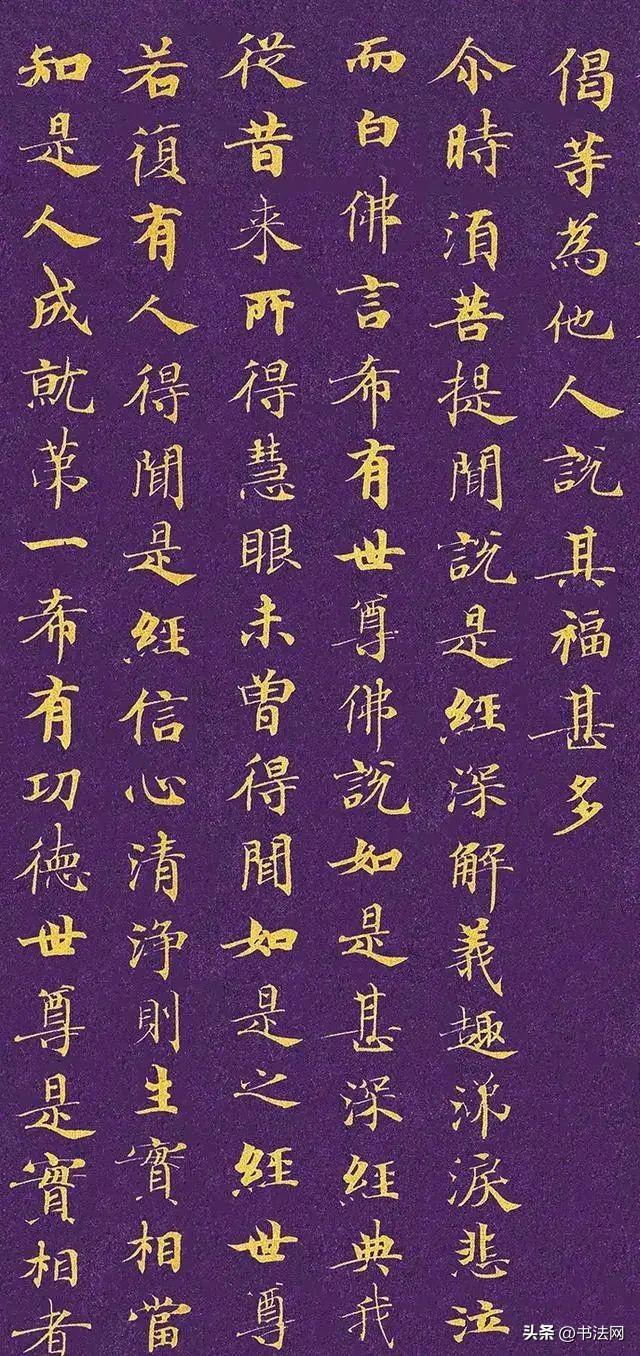 偈等為他人說其福甚多
尒時湏菩提聞說是經深解義趣涕淚悲泣
而白佛言希有世尊佛說如是甚深經典我
從昔来所得慧眼未曾得聞如是之經世尊
若復有人得聞是經信心清淨則生實相當
知是人成就苐一希有功德世尊是實相者
头条 @书法网